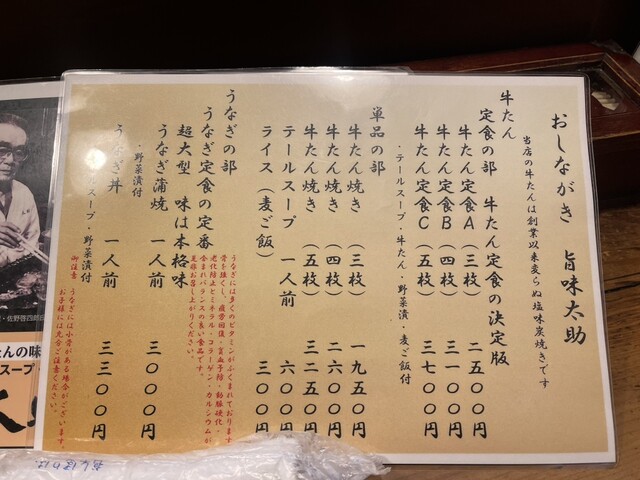 おしながき　旨味太助
当店の牛たんは創業以来変らぬ塩味炭焼きです
牛たん
定食の部　牛たん定食の決定版
牛たん定食A（三枚）　二五〇〇円
牛たん定食B（四枚）　三一〇〇円
牛たん定食C（五枚）　三七〇〇円
・テールスープ・牛たん・野菜漬・麦ご飯付
単品の部
牛たん焼き（三枚）　一九五〇円
牛たん焼き（四枚）　二六〇〇円
牛たん焼き（五枚）　三二五〇円
テールスープ　一人前　六〇〇円
ライス（麦ご飯）　三〇〇円
うなぎの部
うなぎ定食の定番
超大型　味は本格味
うなぎには多くのビタミンがふくまれております
骨を強くし、疲労回復・貧血予防・動脈硬化・
老化防止とミネラル・コラーゲン・カルシウムが
含まれバランスの良い食品です。
是非お召し上がりください。
うなぎ蒲焼　一人前　三〇〇〇円
・野菜漬付
うなぎ丼　一人前　三三〇〇円
スープ・野菜漬付
御注意　うなぎには小骨がある場合がございます。
お子様には充分ご注意ください。
・佐野啓四郎
たんの味
スープ
おしぼり